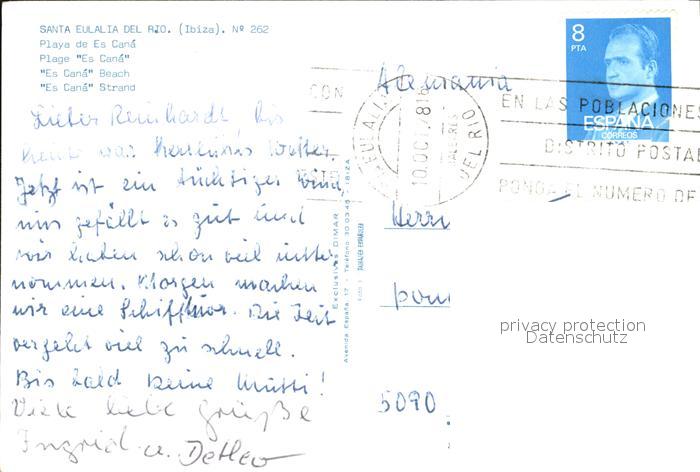 SANTA EULALIA DEL RIO. (Ibiza). Nº 262
Playa de Es Caná
Plage "Es Caná"
"Es Caná" Beach
"Es Caná" Strand
Lieber Reinhardt Bis
heute war herrliches Wetter.
Jetzt ist ein tüchtiger Wind,
uns gefällt es gut und
wir haben schon viel unter-
nommen. Morgen machen
wir eine Schifftour. Die Zeit
vergeht viel zu schnell.
Bis bald Deine Mutti!
Viele liebe Grüße
Ingrid u. Detlev
Exclusivas DIMAR
Avenida España, 17 - Teléfono 30 03 45 - IBIZA
Alemania
8
PTA
ESPAÑA
CORREOS
EULALIA DEL RIO
10.OCT.78
BALERES
CON
EN LAS POBLACIONES
DISTRITO POSTAL
PONGA EL NUMERO DE
Herrn
5090
privacy protection
Datenschutz